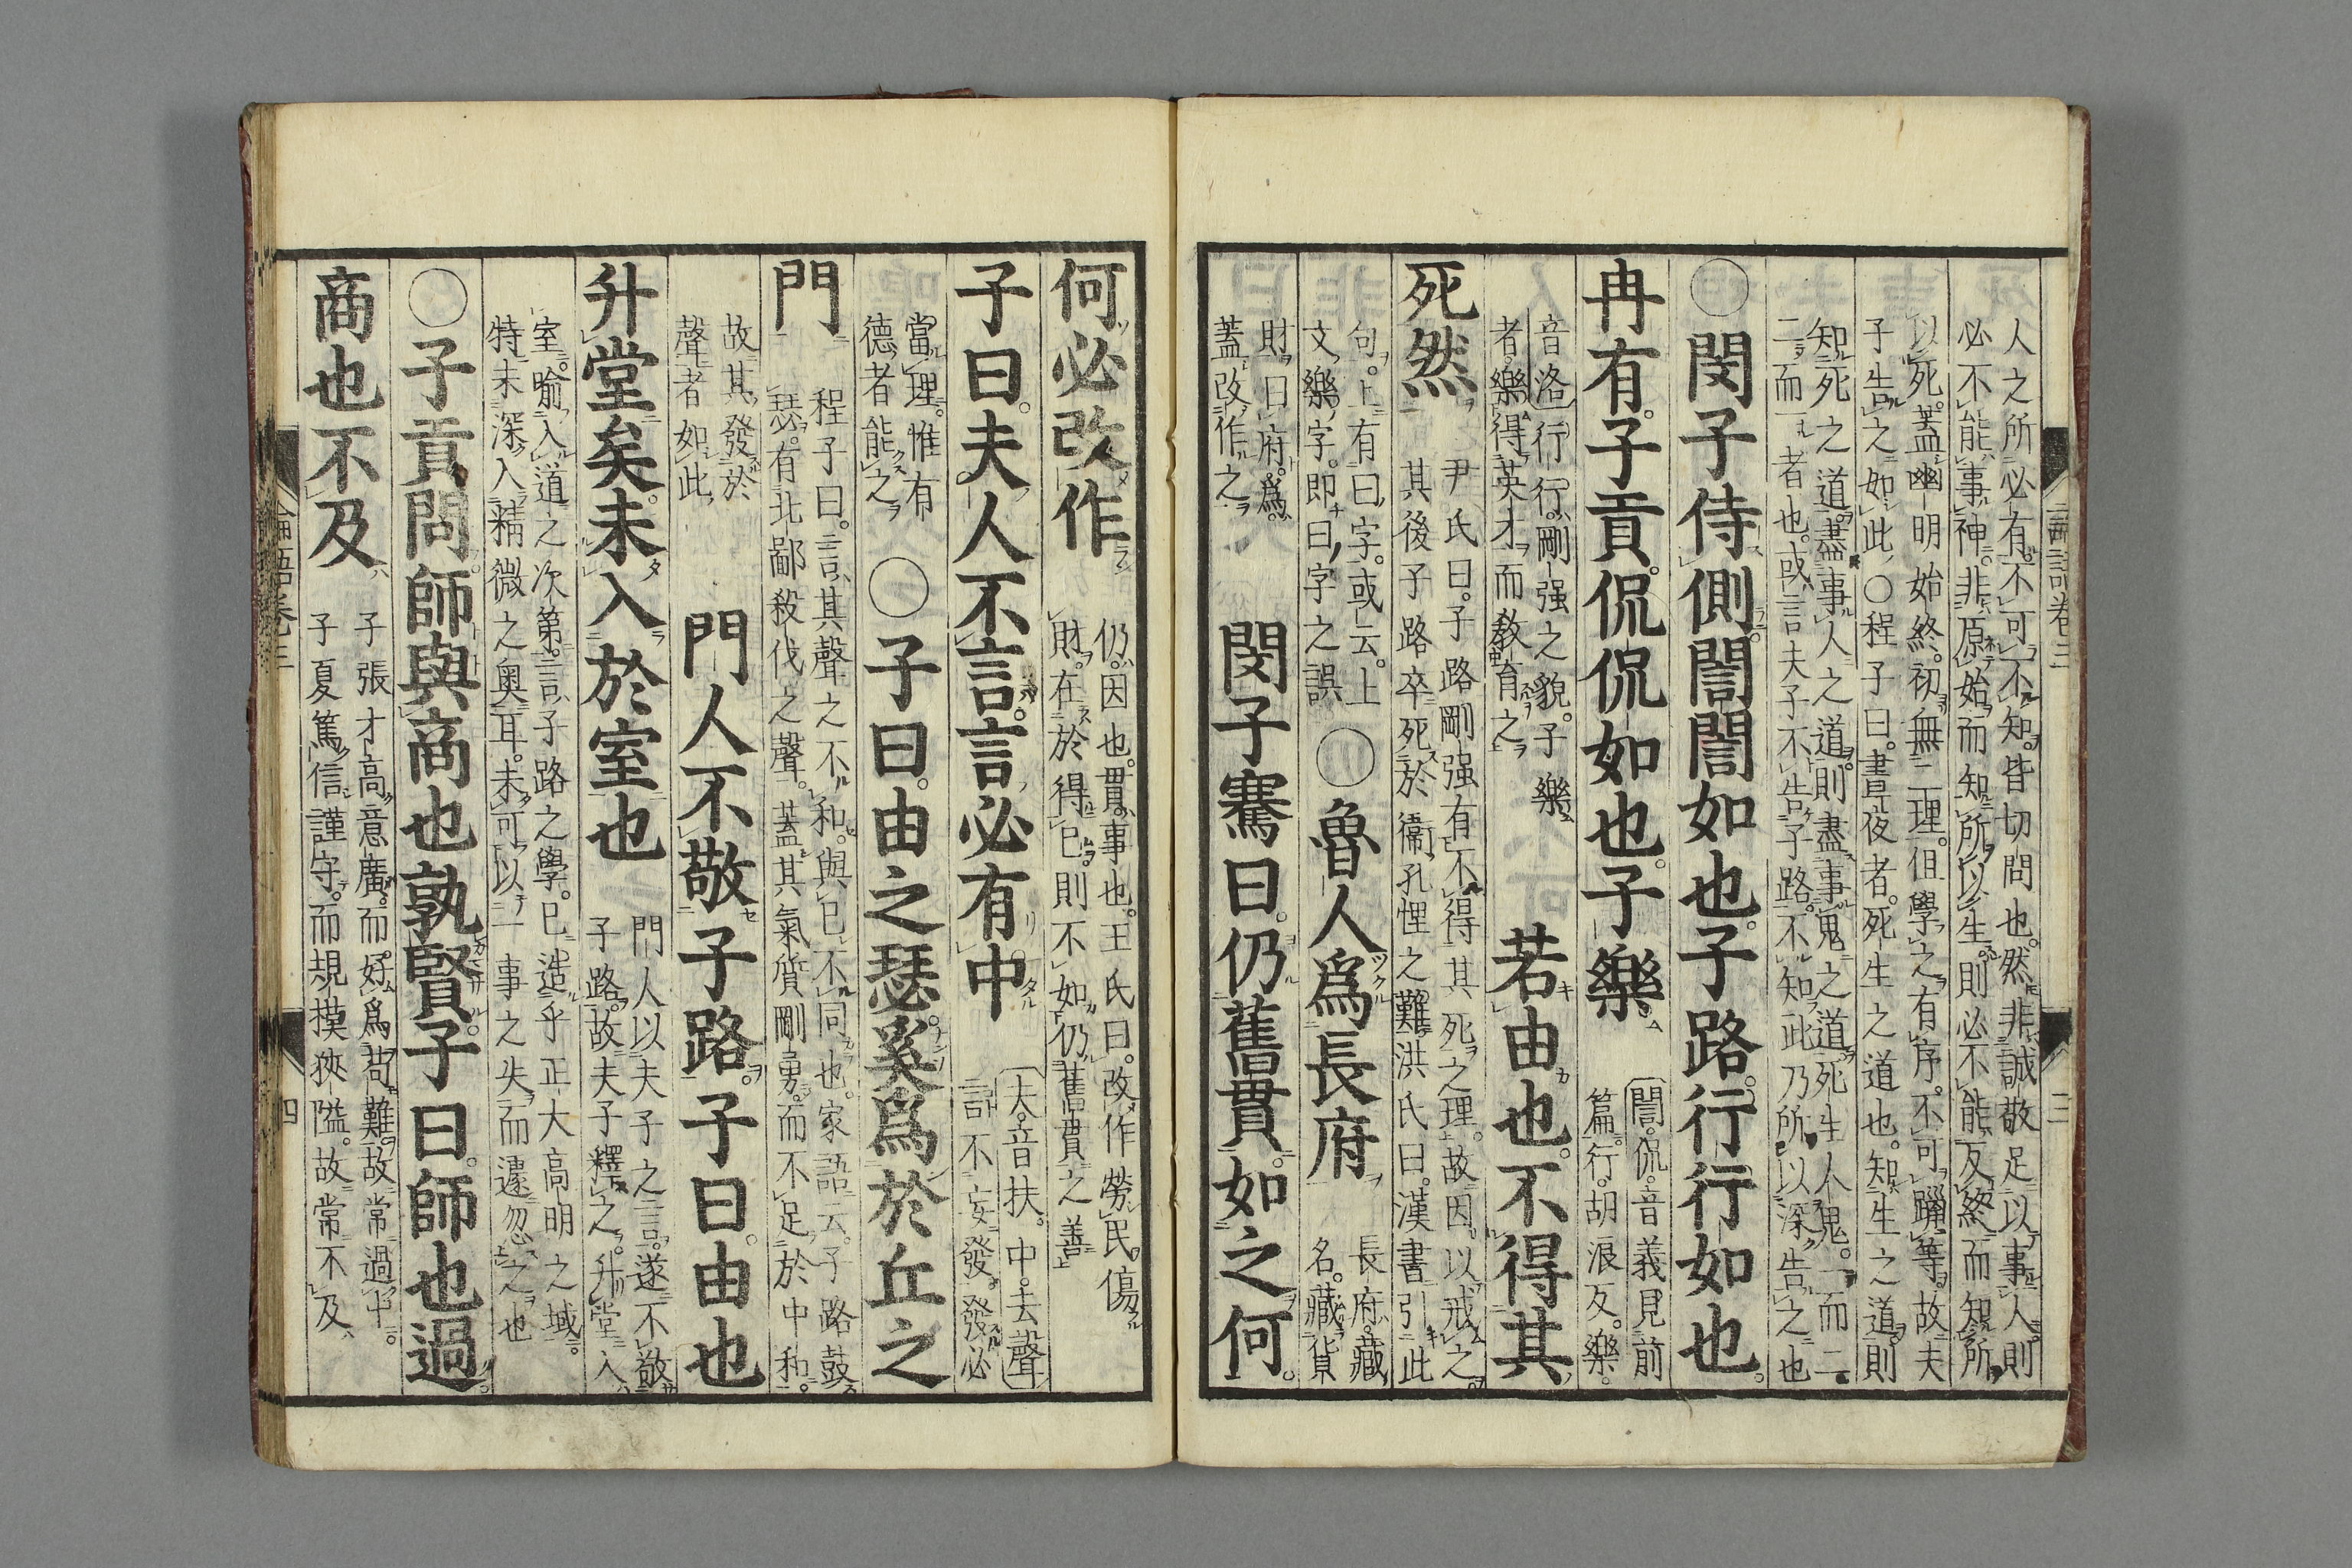 人之所必有不可不知皆切問也然非誠敬足以事人則
必不能事神非原始而知所以生則必不能反終而知所
以死蓋幽明始終初無二理但學之有序不可躐等故夫
子告之如此○程子曰晝夜者死生之道也知生之道則
知死之道盡事人之道則盡事鬼之道死生人鬼一而二
二而一者也或言夫子不告子路不知此乃所以深告之也
○閔子侍側誾誾如也子路行行如也
冉有子貢侃侃如也子樂
誾侃音義見前
篇行胡浪反樂
音洛行行剛强之貌子樂
者樂得英才而敎育之
若由也不得其
死然
尹氏曰子路剛强有不得其死之理故因以戒之
其後子路卒死於衞孔悝之難洪氏曰漢書引此
句上有曰字或云上
文樂字即曰字之誤
○魯人爲長府
長府藏
名藏貨
財曰府爲
蓋改作之
閔子騫曰仍舊貫如之何
何必改作
仍因也貫事也王氏曰改作勞民傷
財在於得已則不如仍舊貫之善
子曰夫人不言言必有中
夫音扶中去聲
言不妄發發必
當理惟有
德者能之
○子曰由之瑟奚爲於丘之
門
程子曰言其聲之不和與已不同也家語云子路鼓
瑟有北鄙殺伐之聲蓋其氣質剛勇而不足於中和
故其發於
聲者如此
門人不敬子路子曰由也
升堂矣未入於室也
門人以夫子之言遂不敬
子路故夫子釋之升堂入
室喻入道之次第言子路之學已造乎正大高明之域
特未深入精微之奧耳未可以一事之失而遽忽之也
○子貢問師與商也孰賢子曰師也過
商也不及
子張才高意廣而好爲苟難故常過中
子夏篤信謹守而規模狹隘故常不及
論語卷三
四